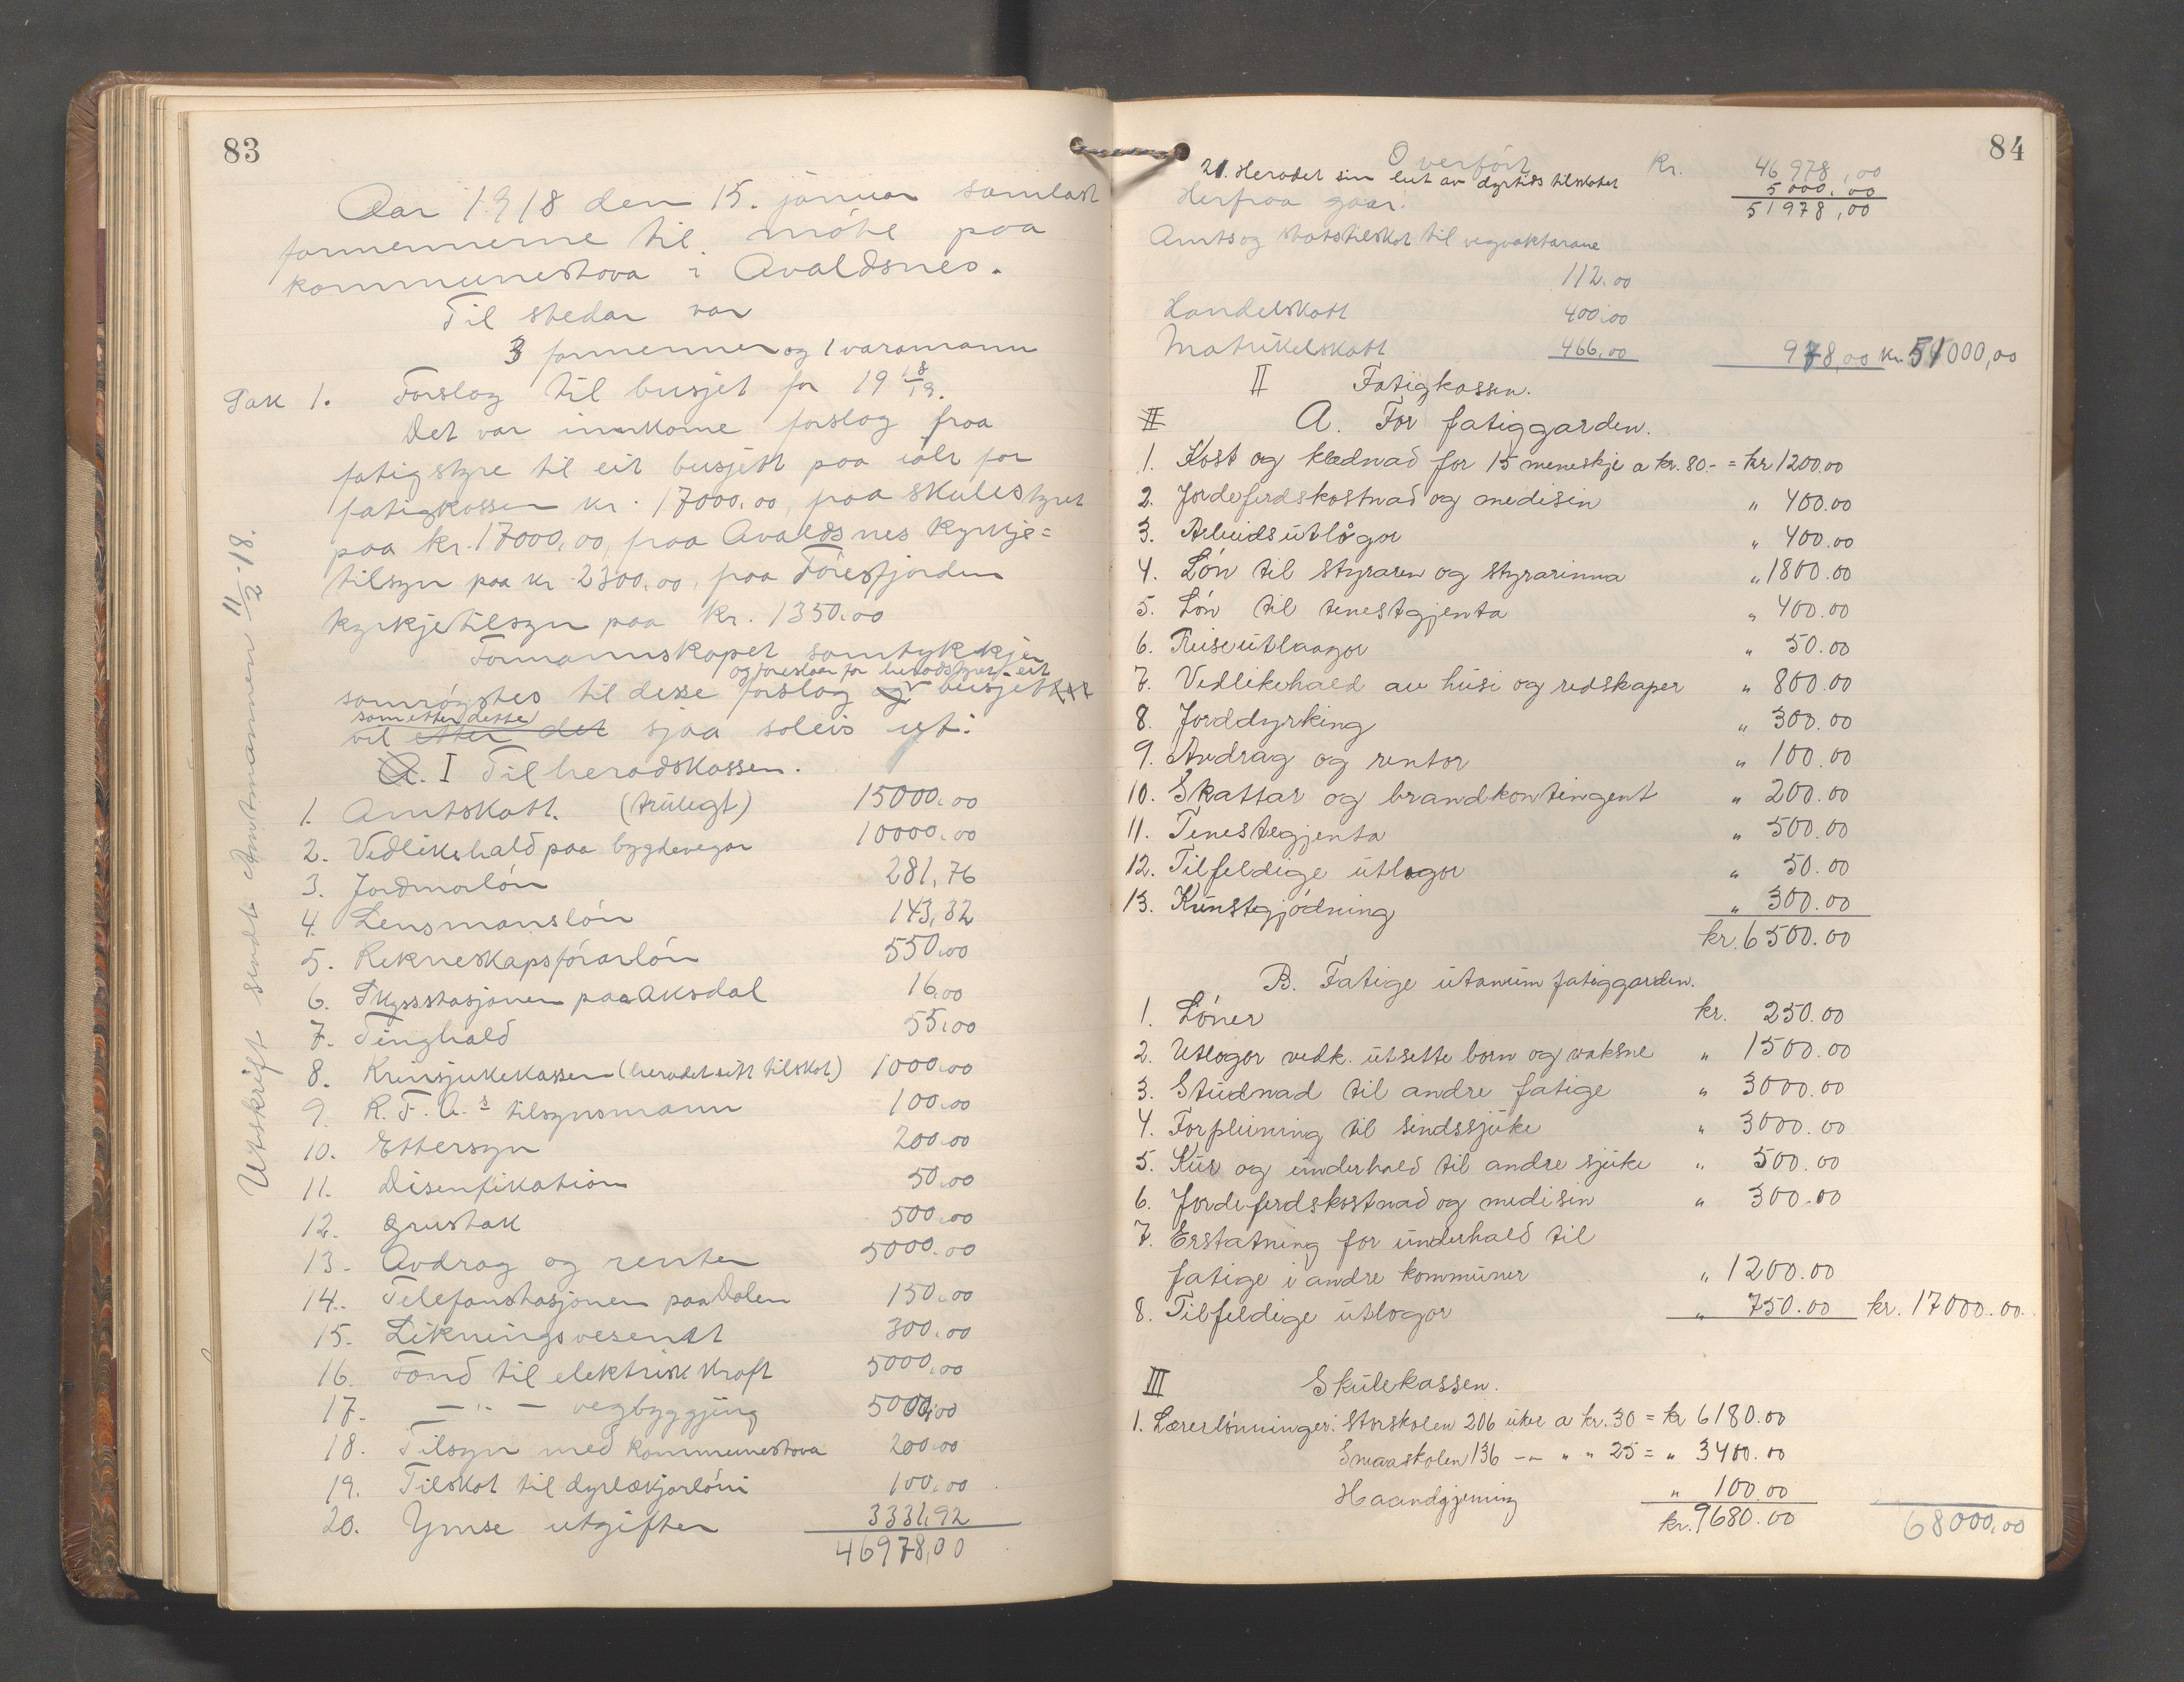 83
Aar 1918 den 15. januar samlast
formennerne til möte paa
kommunestova i Avaldsnes.
Til stedar var
3 formenner og 1 varamann
Sak 1. Forslag til busjet for 19 18/19.
Det var innkome forslag fraa
fatigstyre til eit busjett paa ialt for
fatigkassen kr. 17000.00, fraa skulestyret
paa kr. 17000,00, fraa Avaldsnes kyrkje=
tilsyn paa kr. 2300.00, fraa Föresfjorden
kyrkjetilsyn paa kr. 1350.00
Formannskapet samtykkjer
og foreslaar for heradstyret eit
samrøystes til desse forslag og busjett
som etter dette
vil etter det sjaa soleis ut:
A. I Til heradskassen.
1. Amtskatt. (truleg) 15000.00
2. Vedlikehald paa bygdevegar 10000.00
3. Jordmorlón 281,76
4. Lensmanslón 143,32
5. Rekneskapsfórarlón 550.00
6. Skysstasjonen paa Aksdal 16.00
7. Tinghald 55.00
8. Krinsjukekassen (heradet sitt tilskot) 1000.00
9. R. F. A.s tilsynsmann 100.00
10. Ettersyn 200.00
11. Disenfikation 50.00
12. Grustak 500.00
13. Avdrag og renter 5000.00
14. Telefonstasjonen paa Dalen 150.00
15. Likningsvesenet 300.00
16. Fond til elektrisk kraft 5000.00
17. — „ — vegbyggjing 5000.00
18. Tilsyn med kommunestova 200.00
19. Tilskot til dyrlækjarlón 100.00
20. Ymse utgifter 3331,92
46978,00
Utskrift sendt Amtmannen 11/2-18.
84
Overfórt Kr. 46978,00
21. Heradet sin lut av dyrtids tilskotet 5000.00
Herfraa gaar: 51978,00
Amts og statstilskot til vegvaktarane
112.00
Handelskatt 400.00
Matrikelskatt 466,00 978,00 kr. 51000,00
II Fatigkassen.
II A. For fatiggarden.
1. Kost og klædnad for 15 meneskje a kr. 80.- = kr 1200.00
2. Jordeferdskostnad og medisin „ 400.00
3. Arbeidsutlógor „ 400.00
4. Lón til styraren og styrarinna „ 1800.00
5. Lón til tenestgjenta „ 400.00
6. Reiseutlaagor „ 50.00
7. Vedlikehald av húsi og redskaper „ 800.00
8. Jorddyrking „ 300.00
9. Avdrag og rentor „ 100.00
10. Skattar og brandkontingent „ 200.00
11. Tenestegjenta „ 500.00
12. Tilfeldige utlogor „ 50.00
13. Kunstgjódning „ 300.00
kr. 6500.00
B. Fatige utanum fatiggarden.
1. Lóner kr. 250.00
2. Utlogor vedk. utsette born og vaksne „ 1500.00
3. Studnad til andre fatige „ 3000.00
4. Forpleining til sindssjuke „ 3000.00
5. Kur og underhald til andre sjuke „ 500.00
6. Jordeferdskostnad og medisin „ 300.00
7. Erstatning for underhald til
fatige i andre kommuner „ 1200.00
8. Tilfeldige utlogor „ 750.00 kr. 17000.00.
III Skulekassen.
1. Lærerlónninger: Storskolen 206 uker a kr. 30 = kr 6180.00
Smaaskolen 136 -„- „ „ 25 = „ 3400.00
Haandgjerning „ 100.00
kr. 9680.00 68000,00